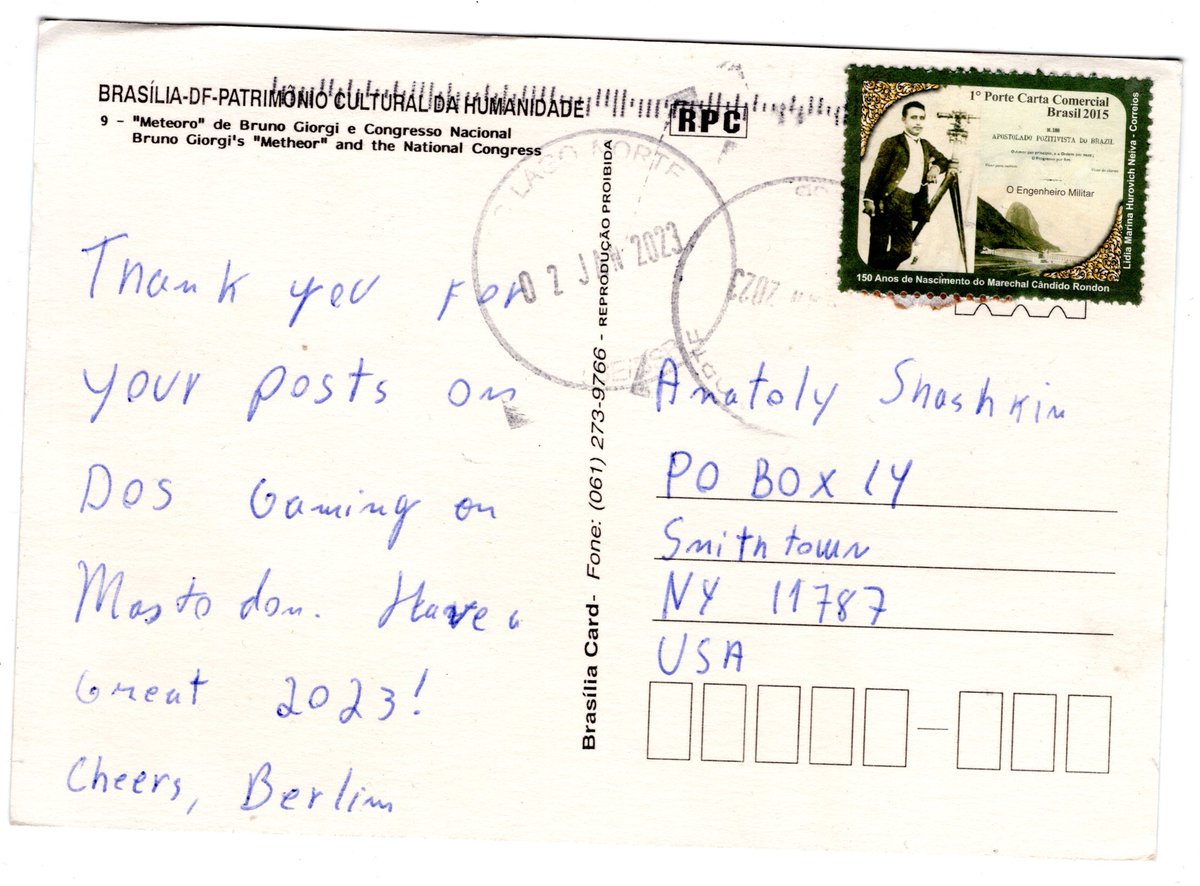 BRASÍLIA-DF-PATRIMÔNIO CULTURAL DA HUMANIDADE
9 - "Meteoro" de Bruno Giorgi e Congresso Nacional
Bruno Giorgi's "Metheor" and the National Congress
RPC
Thank you for
your posts on
DOS Gaming on
Mastodon. Have a
Great 2023!
Cheers, Berlim
LAGO NORTE
02 JAN 2023
2023
Brasília Card- Fone: (061) 273-9766 - REPRODUÇÃO PROIBIDA
1º Porte Carta Comercial
Brasil 2015
APOSTOLADO POZITIVISTA DO BRAZIL
O Engenheiro Militar
150 Anos de Nascimento do Marechal Cândido Rondon
Lidia Marina Hurovich Neiva - Correios
Anatoly Shashkin
PO BOX 14
Smithtown
NY 11787
USA